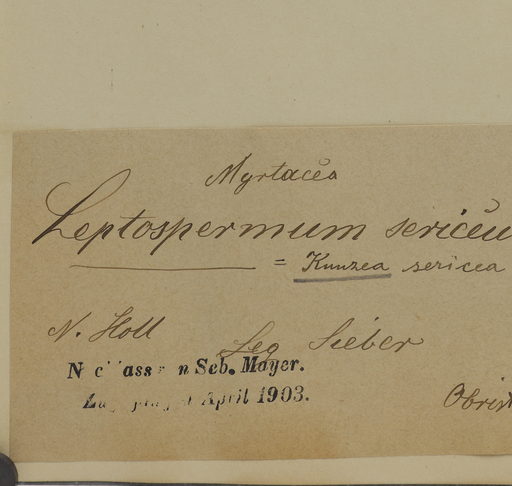 Myrtacea
Leptospermum sericeu
= Kunzea sericea
N. Holl
Leg Sieber
Seb. Mayer.
April 1903.
Obrist